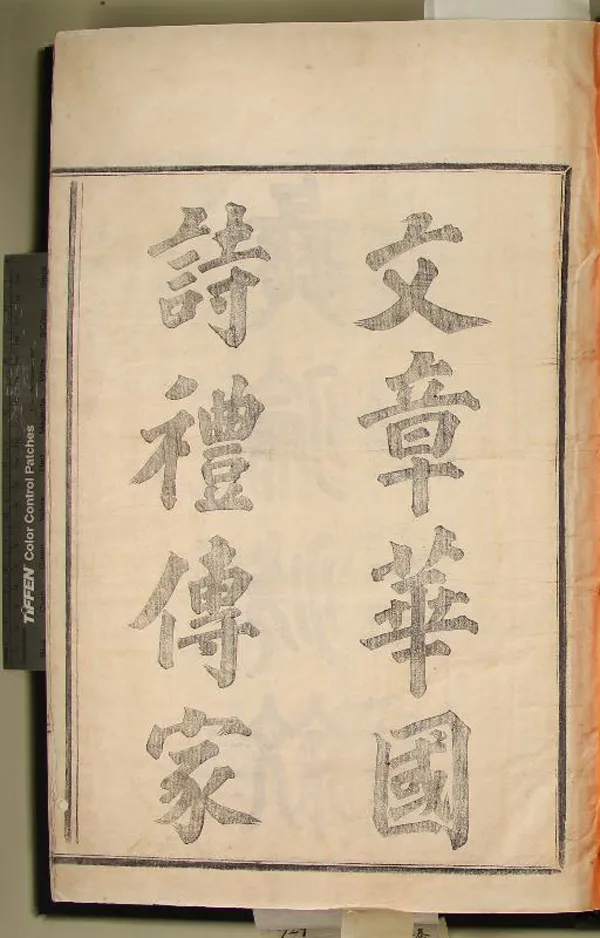 文章華國
詩禮傳家
TIFFEN Color Control Patches